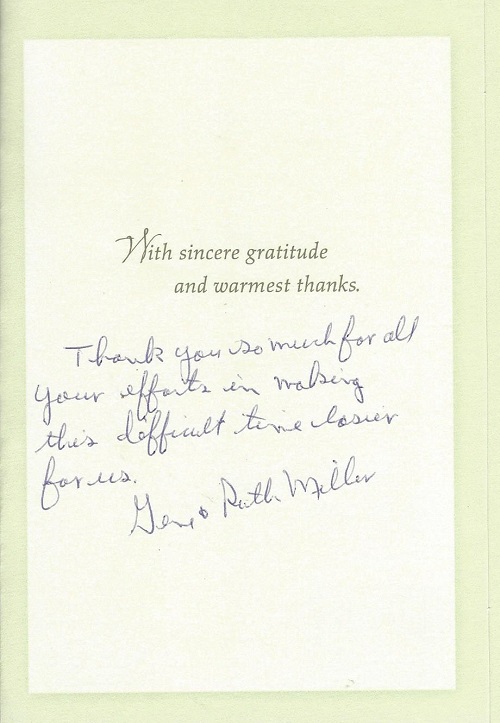 With sincere gratitude
and warmest thanks.
Thank you so much for all
your efforts in making
this difficult time easier
for us.
Ruth Miller